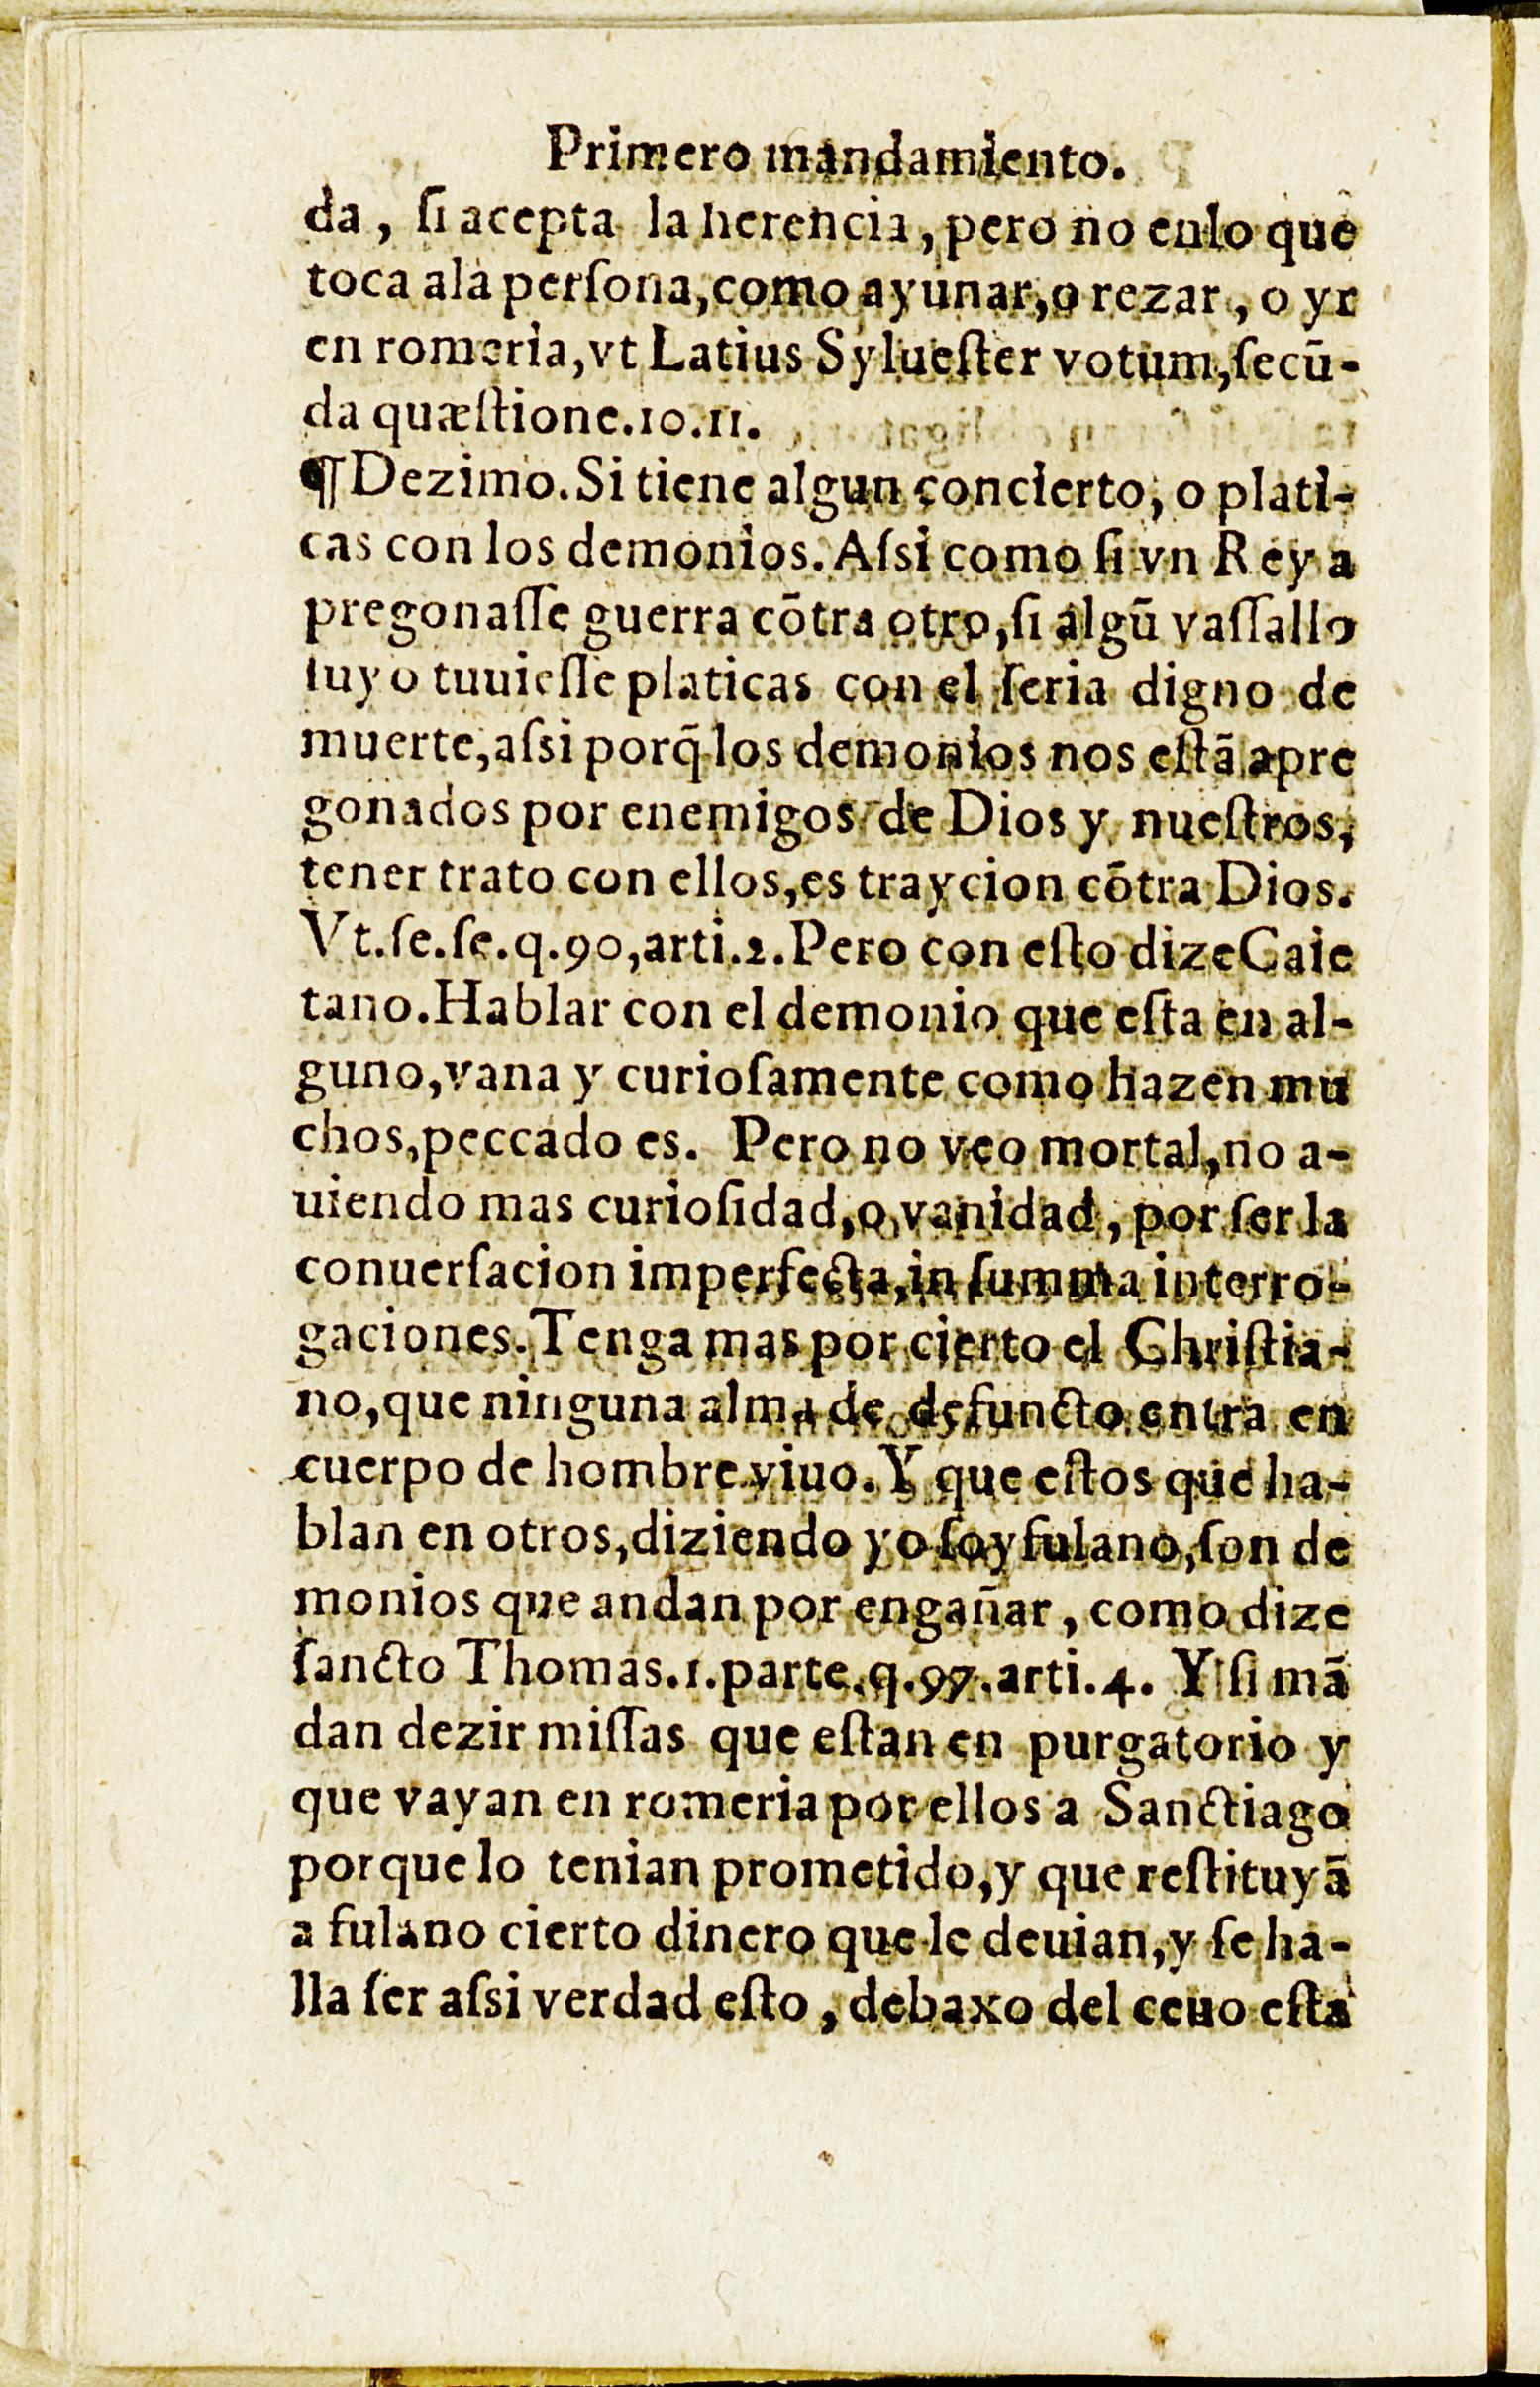 Primero mandamiento.
da, ſi acepta la herencia, pero no enlo que
toca ala perſona, como ayunar, o rezar, o yr
en romeria, vt Latius Sylueſter votum, ſecū-
da quæſtione.10.11.
¶Dezimo. Si tiene algun concierto, o plati-
cas con los demonios. Aſsi como ſi vn Rey a
pregonaſſe guerra cōtra otro, ſi algū vaſſallo
ſuyo tuuieſſe platicas con el ſeria digno de
muerte, aſsi porq̃ los demonios nos eſtā apre
gonados por enemigos de Dios y nueſtros,
tener trato con ellos, es traycion cōtra Dios.
Vt.ſe.ſe.q.90,arti.2. Pero con eſto dize Caie
tano. Hablar con el demonio que eſta en al-
guno, vana y curioſamente como hazen mu
chos, peccado es. Pero no veo mortal, no a-
uiendo mas curioſidad, o vanidad, por ſer la
conuerſacion imperfecta, in ſumma interro-
gaciones. Tenga mas por cierto el Chriſtia-
no, que ninguna alma de defuncto entra en
cuerpo de hombre viuo. Y que eſtos que ha-
blan en otros, diziendo yo ſoy fulano, ſon de
monios que andan por engañar, como dize
ſancto Thomas.1.parte.q.97.arti.4. Y ſi mā
dan dezir miſſas que eſtan en purgatorio y
que vayan en romeria por ellos a Sanctiago
porque lo tenian prometido, y que reſtituyā
a fulano cierto dinero que le deuian, y ſe ha-
lla ſer aſsi verdad eſto, debaxo del ceuo eſta